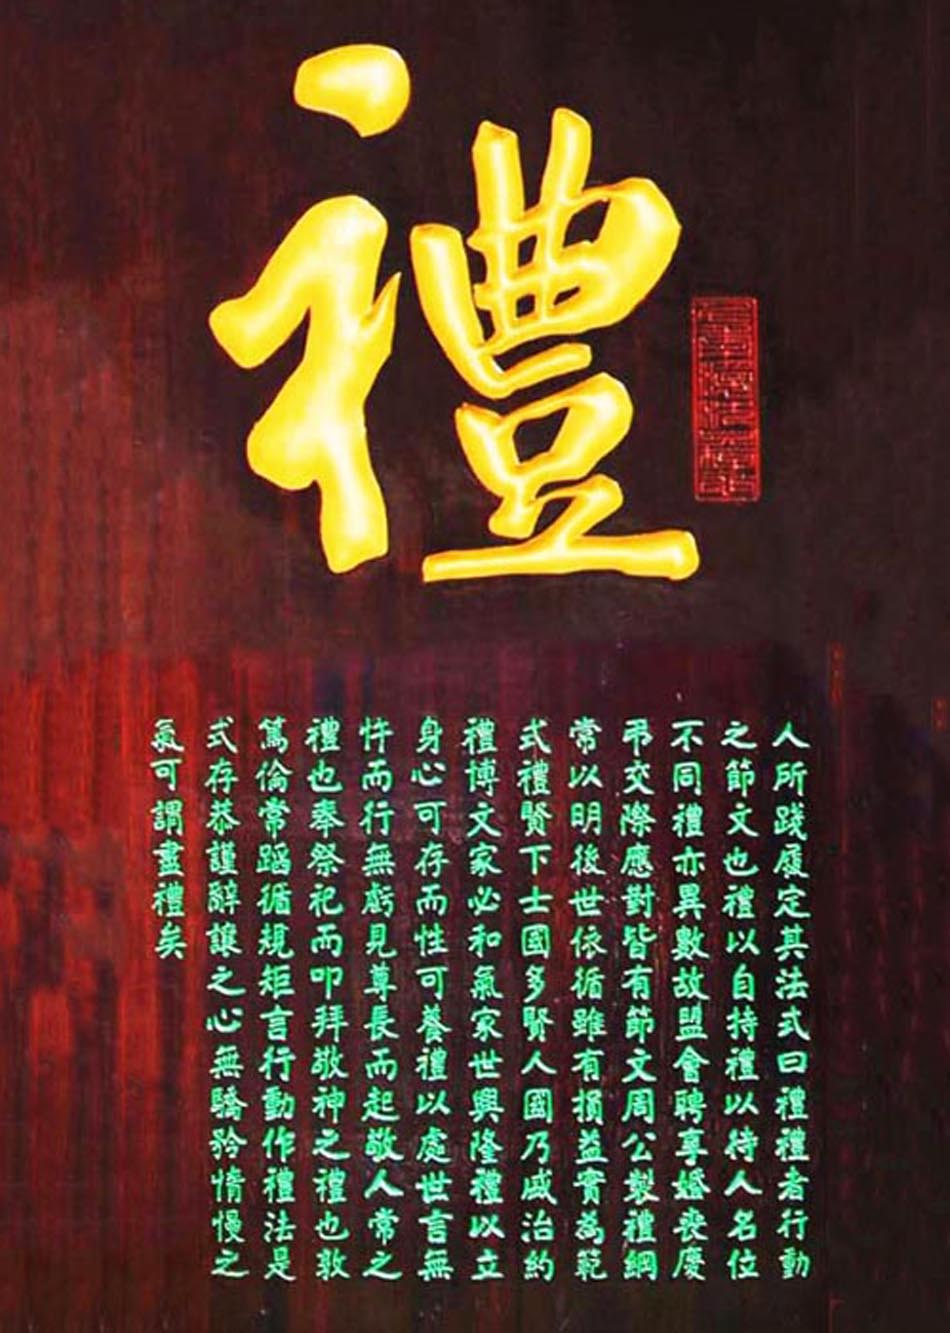 禮
人所踐履定其法式曰禮禮者行動
之節文也禮以自持禮以待人名位
不同禮亦異數故盟會聘享婚喪慶
弔交際應對皆有節文周公製禮綱
常以明後世依循雖有損益實為範
式禮賢下士國多賢人國乃咸治約
禮博文家必和氣家世興隆禮以立
身心可存而性可養禮以處世言無
忤而行無虧見尊長而起敬人常之
禮也奉祭祀而叩拜敬神之禮也敦
篤倫常蹈循規矩言行動作禮法是
式存恭謹辭讓之心無驕矜惰慢之
氣可謂盡禮矣